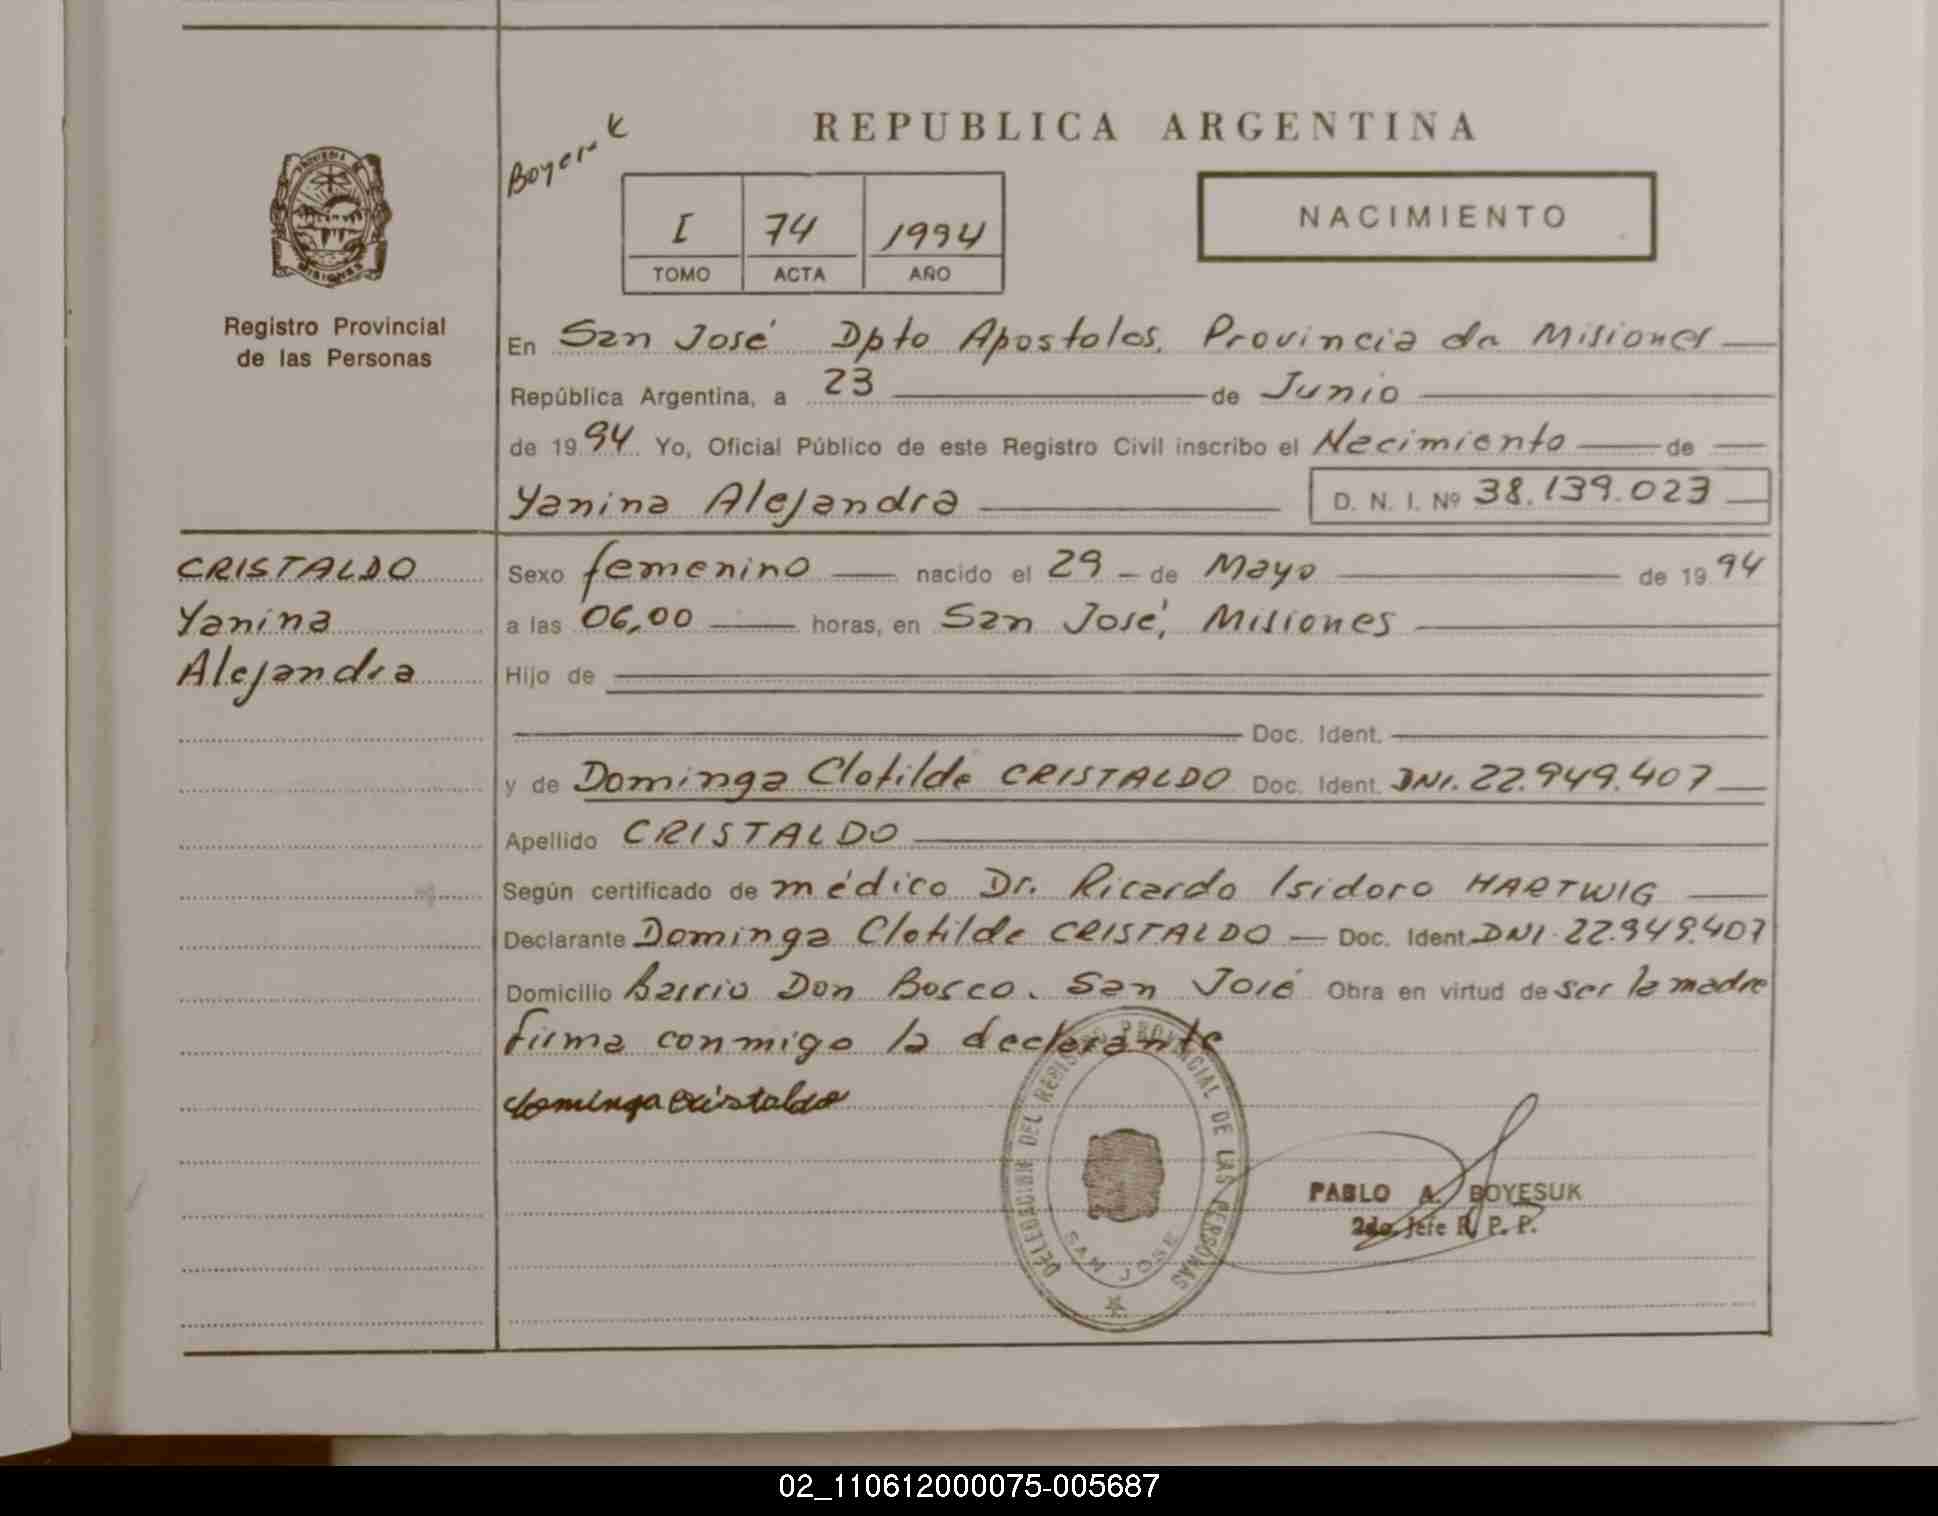 REPUBLICA ARGENTINA
I 74 1994
TOMO ACTA AÑO
NACIMIENTO
Registro Provincial
de las Personas
En San José Dpto Apostoles, Provincia de Misiones
República Argentina, a 23 de Junio
de 1994 Yo, Oficial Público de este Registro Civil inscribo el Nacimiento de
Yanina Alejandra D. N. I. Nº 38.139.023
CRISTALDO
Yanina
Alejandra
Sexo femenino nacido el 29 de Mayo de 1994
a las 06,00 horas, en San José, Misiones
Hijo de
Doc. Ident.
y de Dominga Clotilde CRISTALDO Doc. Ident. DNI. 22.949.407
Apellido CRISTALDO
Según certificado de médico Dr. Ricardo Isidoro HARTWIG
Declarante Dominga Clotilde CRISTALDO Doc. Ident. DNI. 22.949.407
Domicilio Barrio Don Bosco. San José Obra en virtud de ser la madre
firma conmigo la declarante
dominga cristaldo
DELEGACION DEL REGISTRO PROVINCIAL DE LAS PERSONAS
SAN JOSE
PABLO A. BOYESUK
2do. Jefe R. P. P.
02_110612000075-005687